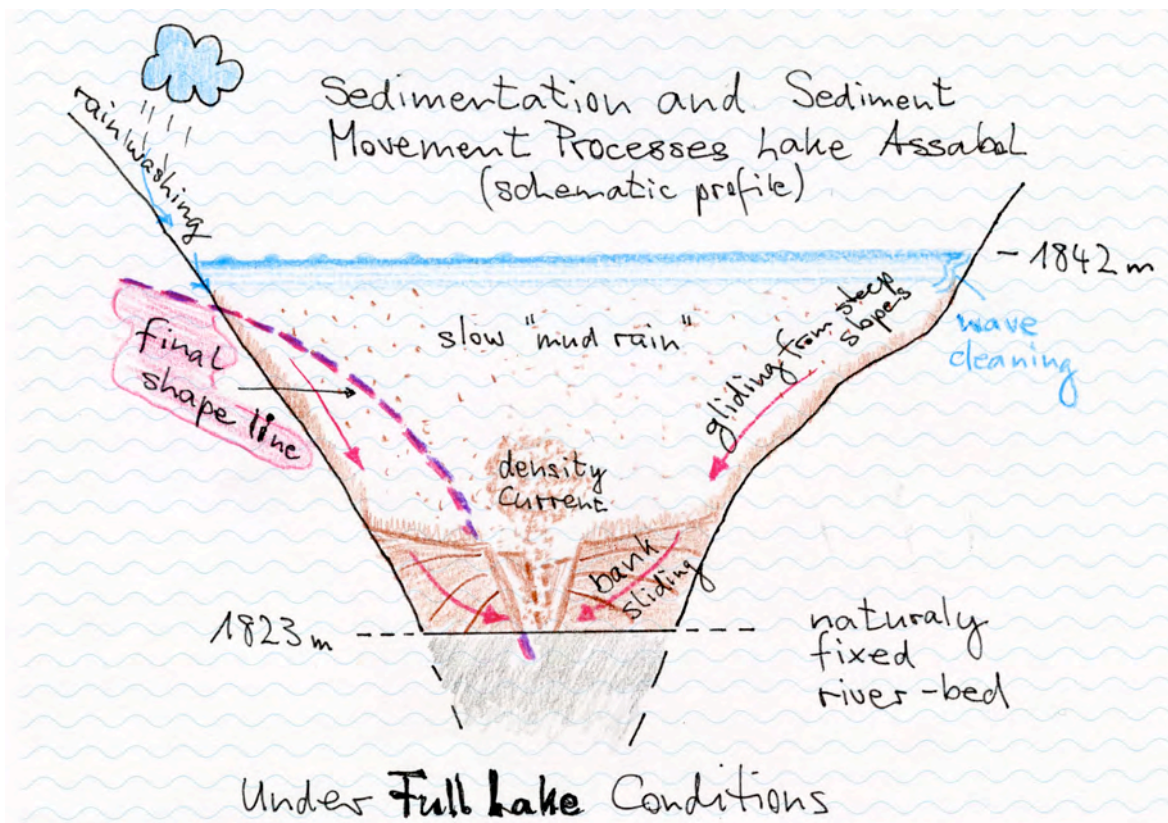 Sedimentation and Sediment
Movement Processes Lake Assabol
(schematic profile)
rainwashing
- 1842 m
final
shape line
slow "mud rain"
gliding from steep
slopes
wave
cleaning
density
Current
bank
sliding
1823 m
naturaly
fixed
river-bed
Under Full Lake Conditions